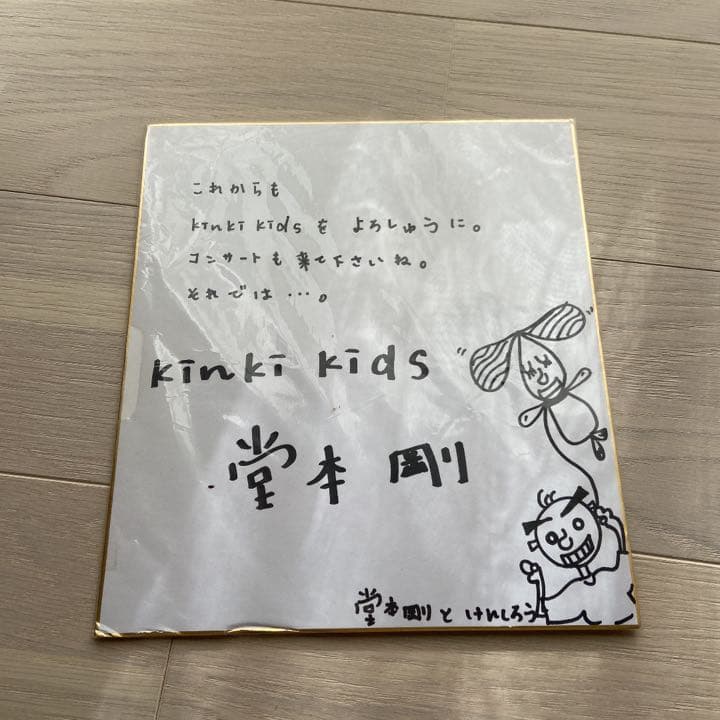 これからも
kinki kids を よろしゅうに。
コンサートも来て下さいね。
それでは…。
kinki kids
堂本剛
堂本剛と けんしろう